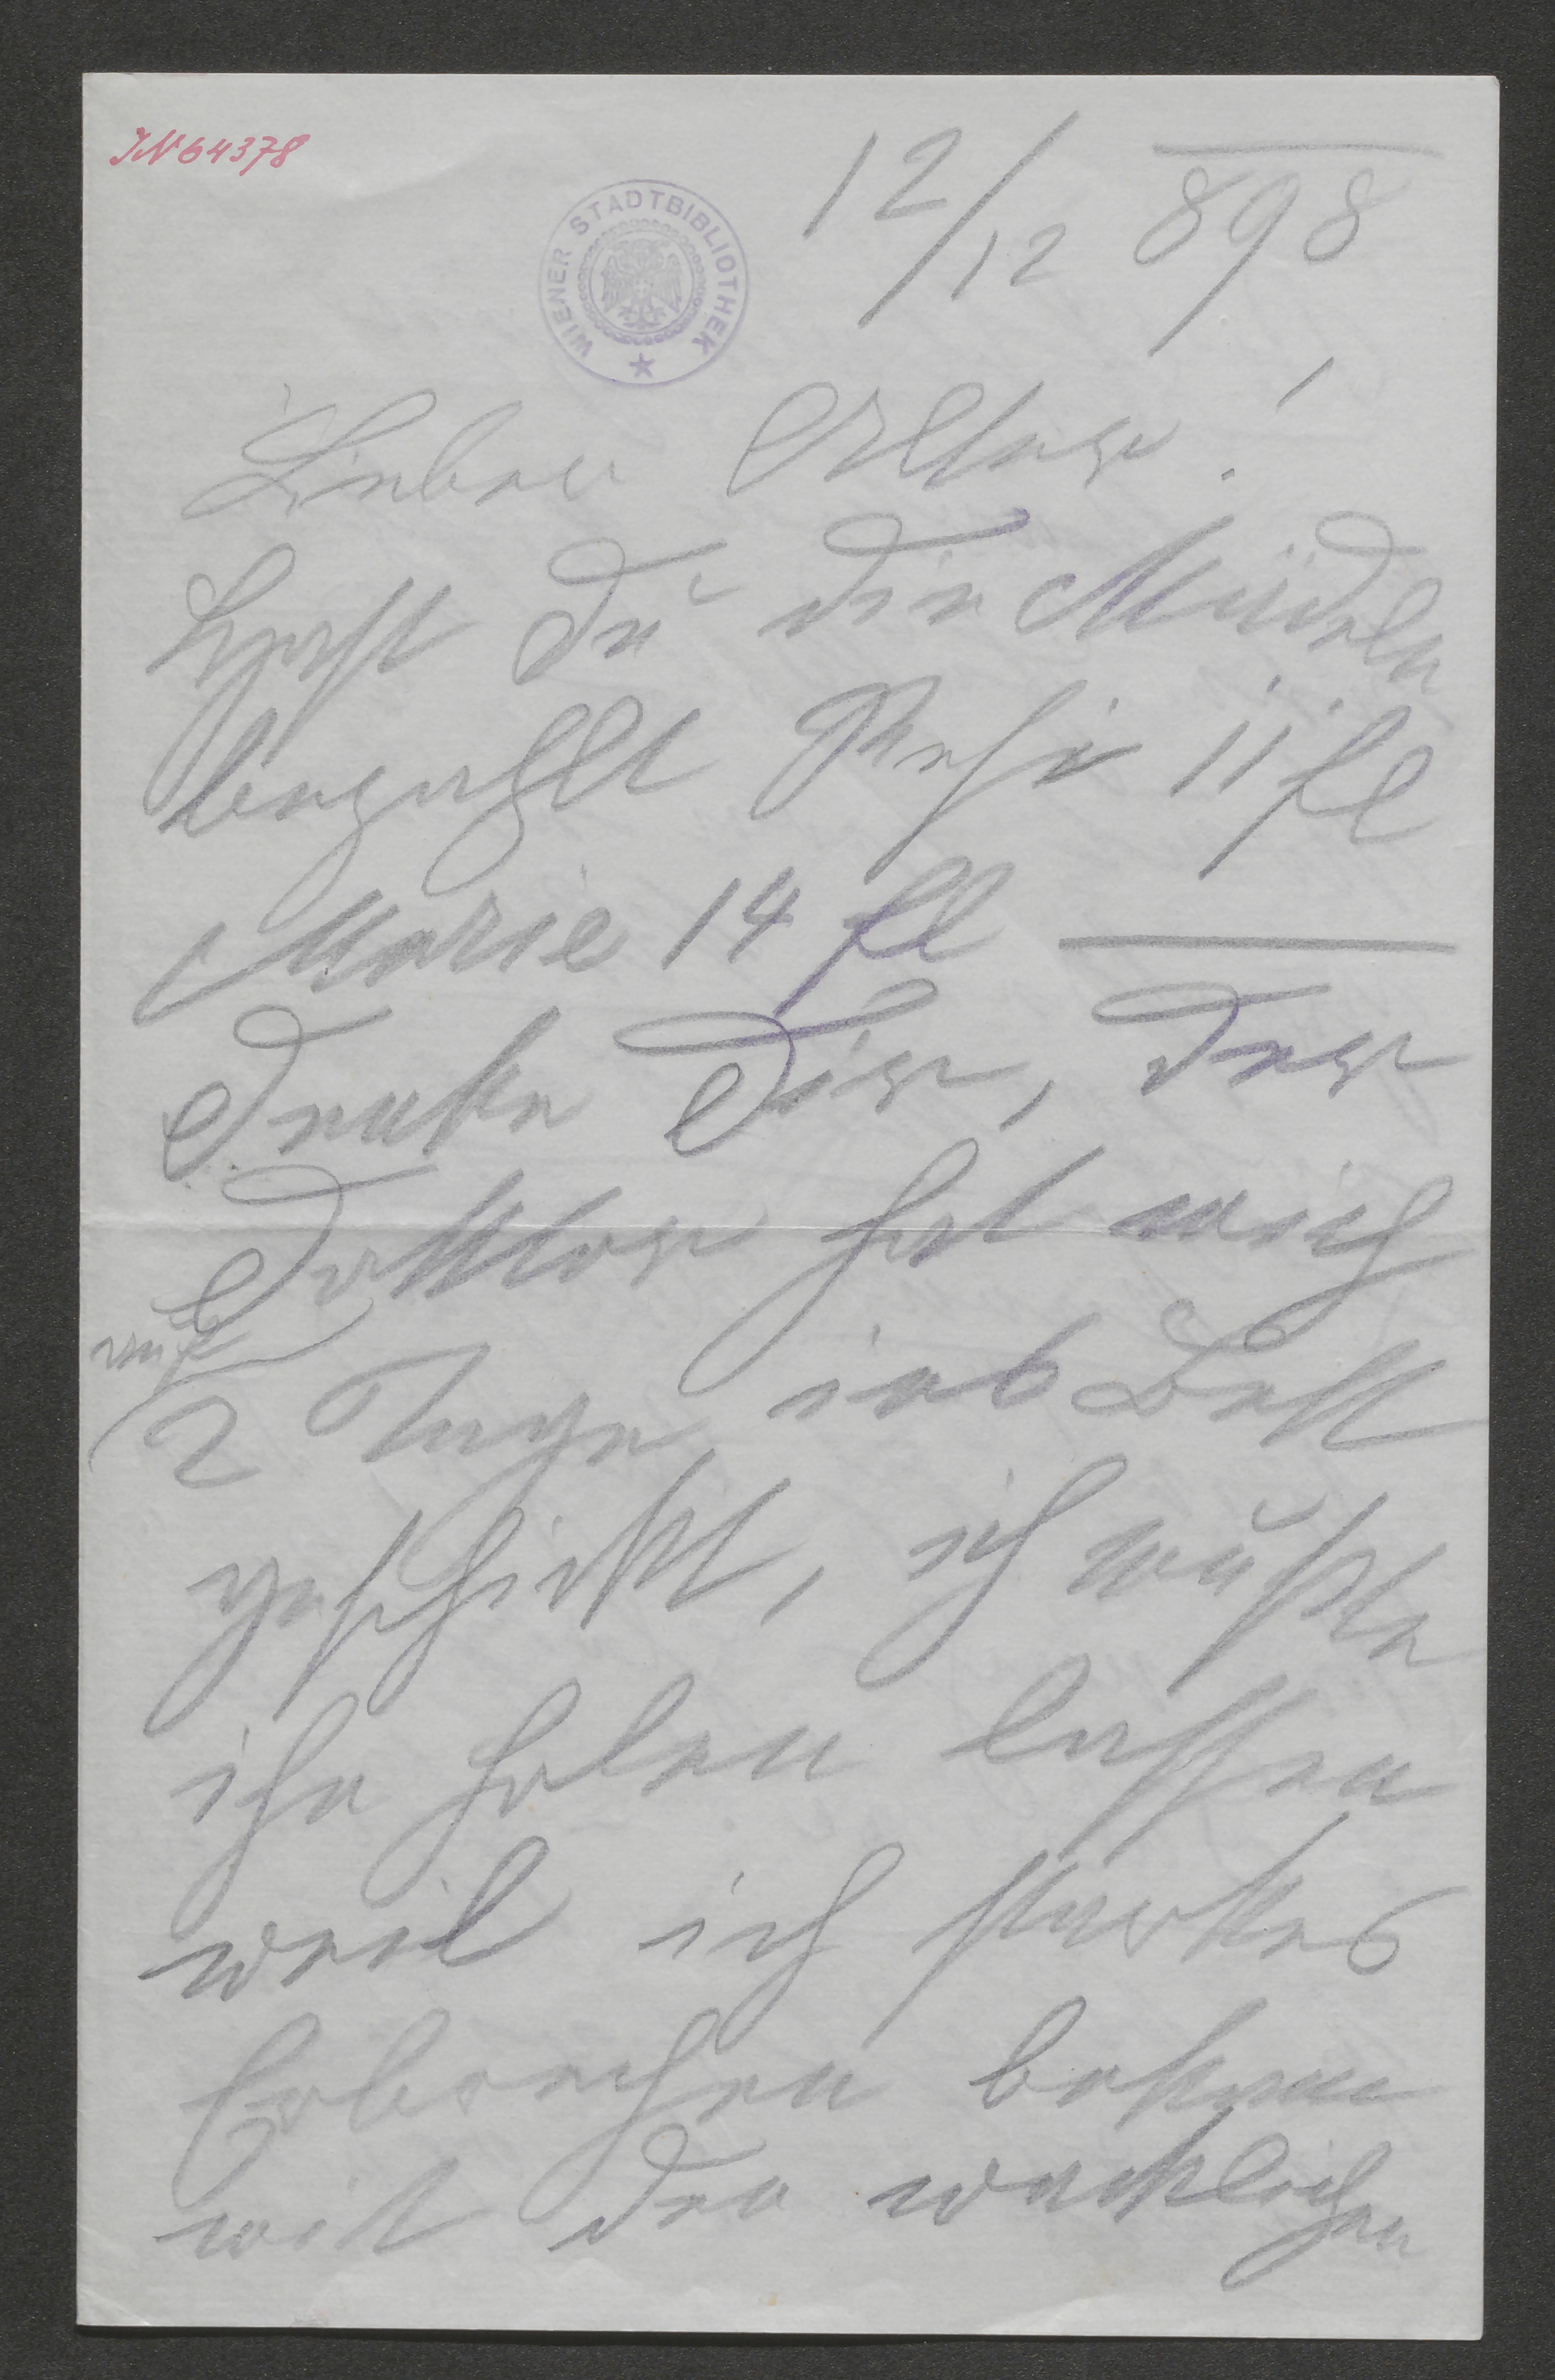 IN 64378
WIENER STADTBIBLIOTHEK
12/12 898
Lieber Alter!
Hast Du die Mädeln
bezahlt Resi 11 fl
Marie 14 fl
Denke Dir, der
Doktor hat mich
auf
2 Tage ins Bett
geschickt, ich mußte
ihn holen lassen
weil ich starkes
Erbrechen bekam
mit den